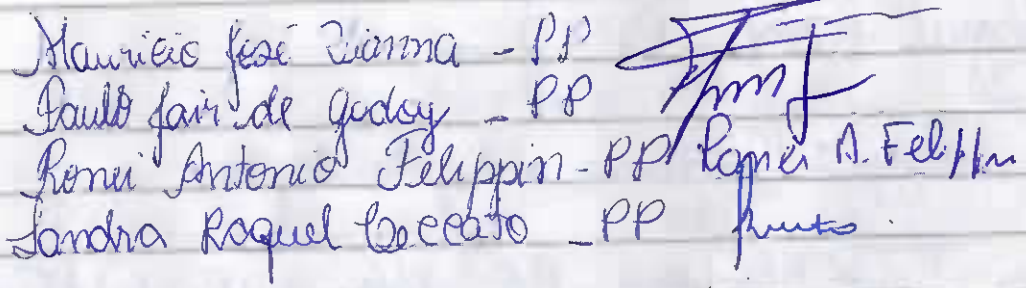 Mauricio José Vianna - PP
Paulo Jair de Godoy - PP
Ronei Antonio Felippin - PP Ronei A. Felippin
Sandra Raquel Ceccato - PP